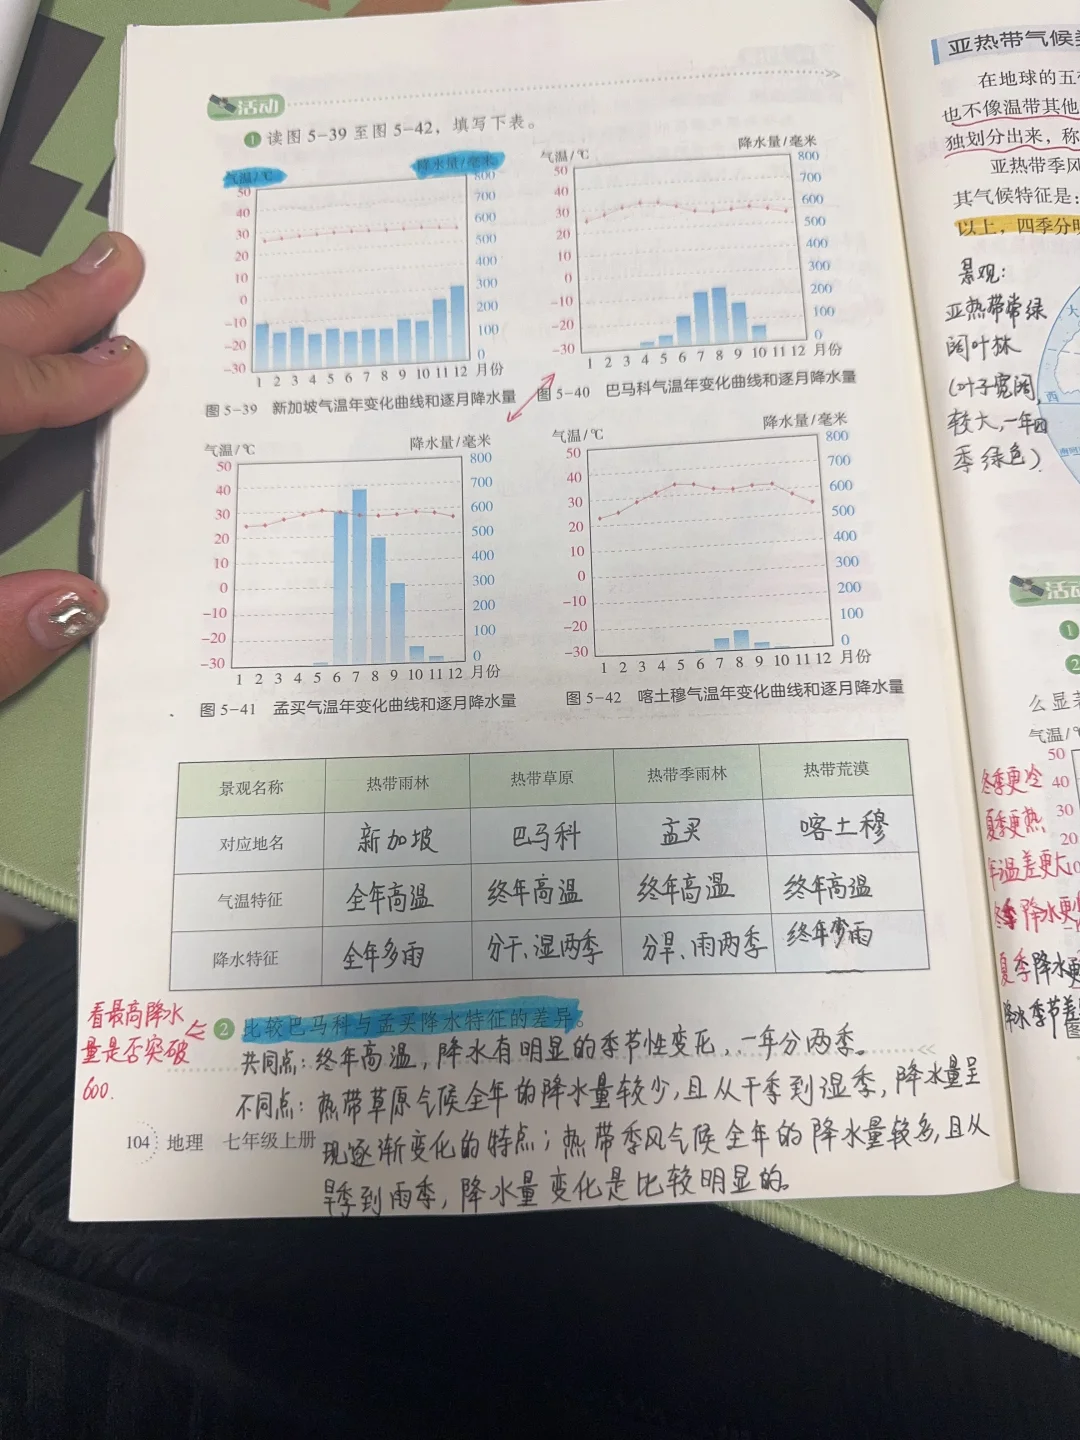 活动
1 读图5-39至图5-42，填写下表。
气温/℃ 降水量/毫米
50 40 30 20 10 0 -10 -20 -30
800 700 600 500 400 300 200 100 0
1 2 3 4 5 6 7 8 9 10 11 12 月份
图5-39 新加坡气温年变化曲线和逐月降水量
气温/℃ 降水量/毫米
50 40 30 20 10 0 -10 -20 -30
800 700 600 500 400 300 200 100 0
1 2 3 4 5 6 7 8 9 10 11 12 月份
图5-40 巴马科气温年变化曲线和逐月降水量
气温/℃ 降水量/毫米
50 40 30 20 10 0 -10 -20 -30
800 700 600 500 400 300 200 100 0
1 2 3 4 5 6 7 8 9 10 11 12 月份
图5-41 孟买气温年变化曲线和逐月降水量
气温/℃ 降水量/毫米
50 40 30 20 10 0 -10 -20 -30
800 700 600 500 400 300 200 100 0
1 2 3 4 5 6 7 8 9 10 11 12 月份
图5-42 喀土穆气温年变化曲线和逐月降水量
景观名称 热带雨林 热带草原 热带季雨林 热带荒漠
对应地名 新加坡 巴马科 孟买 喀土穆
气温特征 全年高温 终年高温 终年高温 终年高温
降水特征 全年多雨 分干、湿两季 分旱、雨两季 终年少雨
2 比较巴马科与孟买降水特征的差异。
看最高降水
量是否突破
600.
共同点：终年高温，降水有明显的季节性变化，一年分两季。
不同点：热带草原气候全年的降水量较少，且从干季到湿季，降水量呈
现逐渐变化的特点；热带季风气候全年的降水量较多，且从
旱季到雨季，降水量变化是比较明显的。
104 地理 七年级上册
亚热带气候
在地球的五
也不像温带其他
独划分出来，称
亚热带季风
其气候特征是：
以上，四季分明
景观：
亚热带常绿
阔叶林
（叶子宽阔，
较大，一年四
季绿色）
西
大
活动
1
2
么显著
气温/℃
50
40
30
20
10
冬季更冷
夏季更热
年温差更大
冬季降水更
夏季降水更
降水季节差
图